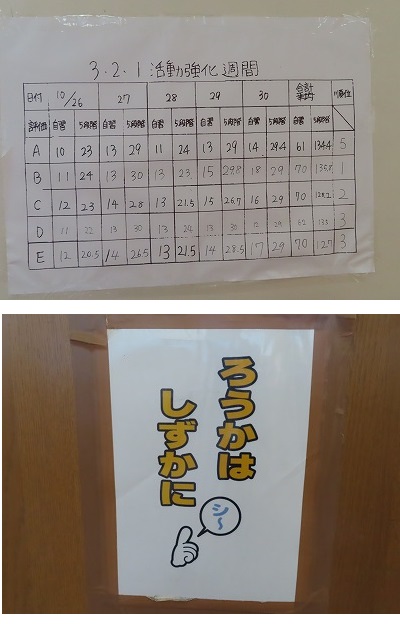 3.2.1 活動強化週間
日付 10/26 27 28 29 30 合計 順位
評価 自習 5段階 自習 5段階 自習 5段階 自習 5段階 自習 5段階 自習 5段階
A 10 23 13 29 11 24 13 29 14 29.4 61 134.4 5
B 11 24 13 30 13 23 15 29.8 18 29 70 135.8 1
C 12 23 14 28 13 21.5 15 26.7 16 29 70 128.2 2
D 11 22 13 30 13 24 13 30 12 29 62 135 3
E 12 20.5 14 26.5 13 21.5 14 28.5 17 29 70 127 3
ろうかは
しずかに
シ〜